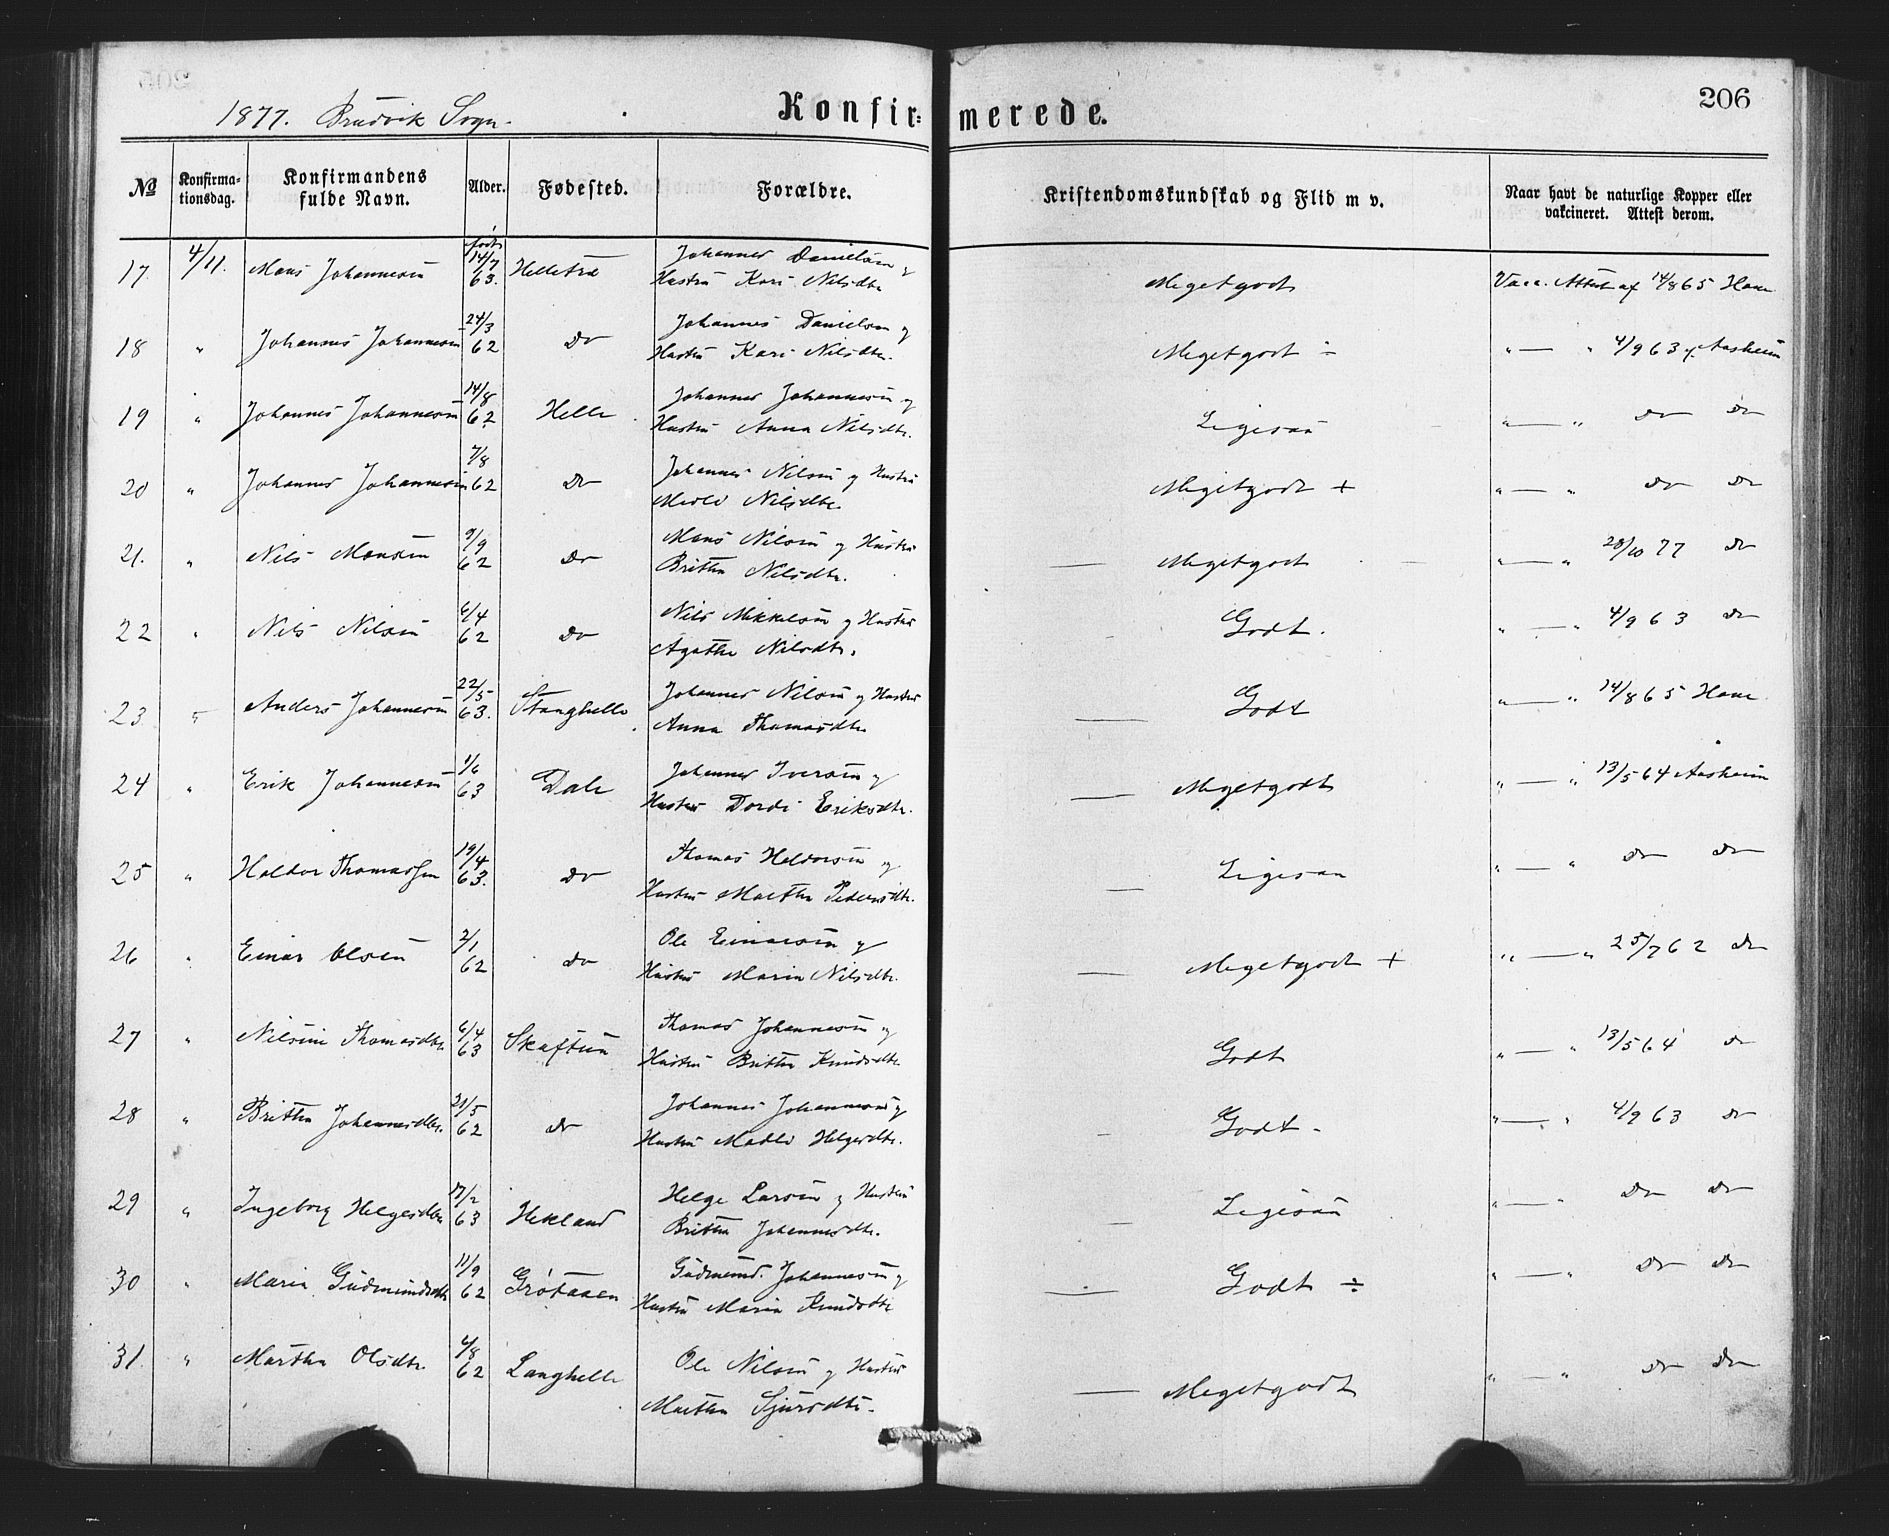 206
1877. Brudvik Sogn.
Konfirmerede.
№ Konfirmationsdag. Konfirmandens fulde Navn. Alder. Fødested. Forældre. Kristendomskundskab og Flid m v. Naar havt de naturlige Kopper eller vakcineret. Attest derom.
17. 4/11. Mons Johannesen født 14/7 63. Helletræ Johannes Danielsen og Hustru Kari Nilsdtr Megetgodt Vacc. Attest af 14/8 65 Hane
18 " Johannes Johannesen 24/3 62 Do Johannes Danielsen og Hustru Kari Nilsdtr. Megetgodt ÷ " — " 4/9 63 f. Aasheim
19 " Johannes Johannesen 14/8 62 Helle Johannes Johannesen og Hustru Anna Nilsdtr. Ligesaa " — " Do Do
20 " Johannes Johannesen 7/8 62 Do Johannes Nilsen og Hustru Nilsdtr. Megetgodt + " — " Do Do
21. " Nils Monsen 9/9 62 Do Mons Nilsen og Hustru Britha Nilsdtr. — Megetgodt " — " 28/10 77 Do
22 " Nils Nilsen 6/4 62 Do Nils Mikkelsen og Hustru Agatha Nilsdtr. Godt. " — " 4/9 63 Do
23 " Anders Johannesen 22/5 63. Stanghelle Johannes Nilsen og Hustru Anna Thomasdtr — Godt " — " 14/8 65 Hane
24 " Erik Johannesen 1/6 63 Dale Johannes Iversen og Hustru Dordi Eriksdtr. — Megetgodt " — " 13/5 64 Aasheim
25 " Haldor Thomassen 19/4 63. Do Thomas Haldorsen og Hustru Martha Pedersdtr. — Ligesaa " — " Do Do
26 " Einar Olsen 2/1 62 Do Ole Einarsen og Hustru Maria Nilsdtr. — Megetgodt + " — " 25/7 62 Do
27 " Nilsine Thomasdtr 6/4 63 Skaftun Thomas Johannesen og Hustru Britha Knudsdtr — Godt " — " 13/5 64 Do
28 " Britha Johannesdtr. 21/5 62 Do Johannes Johannesen og Hustru Madli Helgesdtr. — Godt " — " 4/9 63 Do
29 " Ingeborg Helgesdtr 17/2 63 Hekland Helge Larsen og Hustru Britha Johannesdtr. — Ligesaa " — " Do Do
30 " Maria Gudmundsdtr 11/9 62 Grøtaaen Gudmund. Johannesen og Hustru Maria Knudsdtr — Godt ÷ " — " Do Do
31. " Martha Olsdtr 4/8 62 Langhelle Ole Nilsen og Hustru Martha Sjursdtr. — Megetgodt " — " Do Do